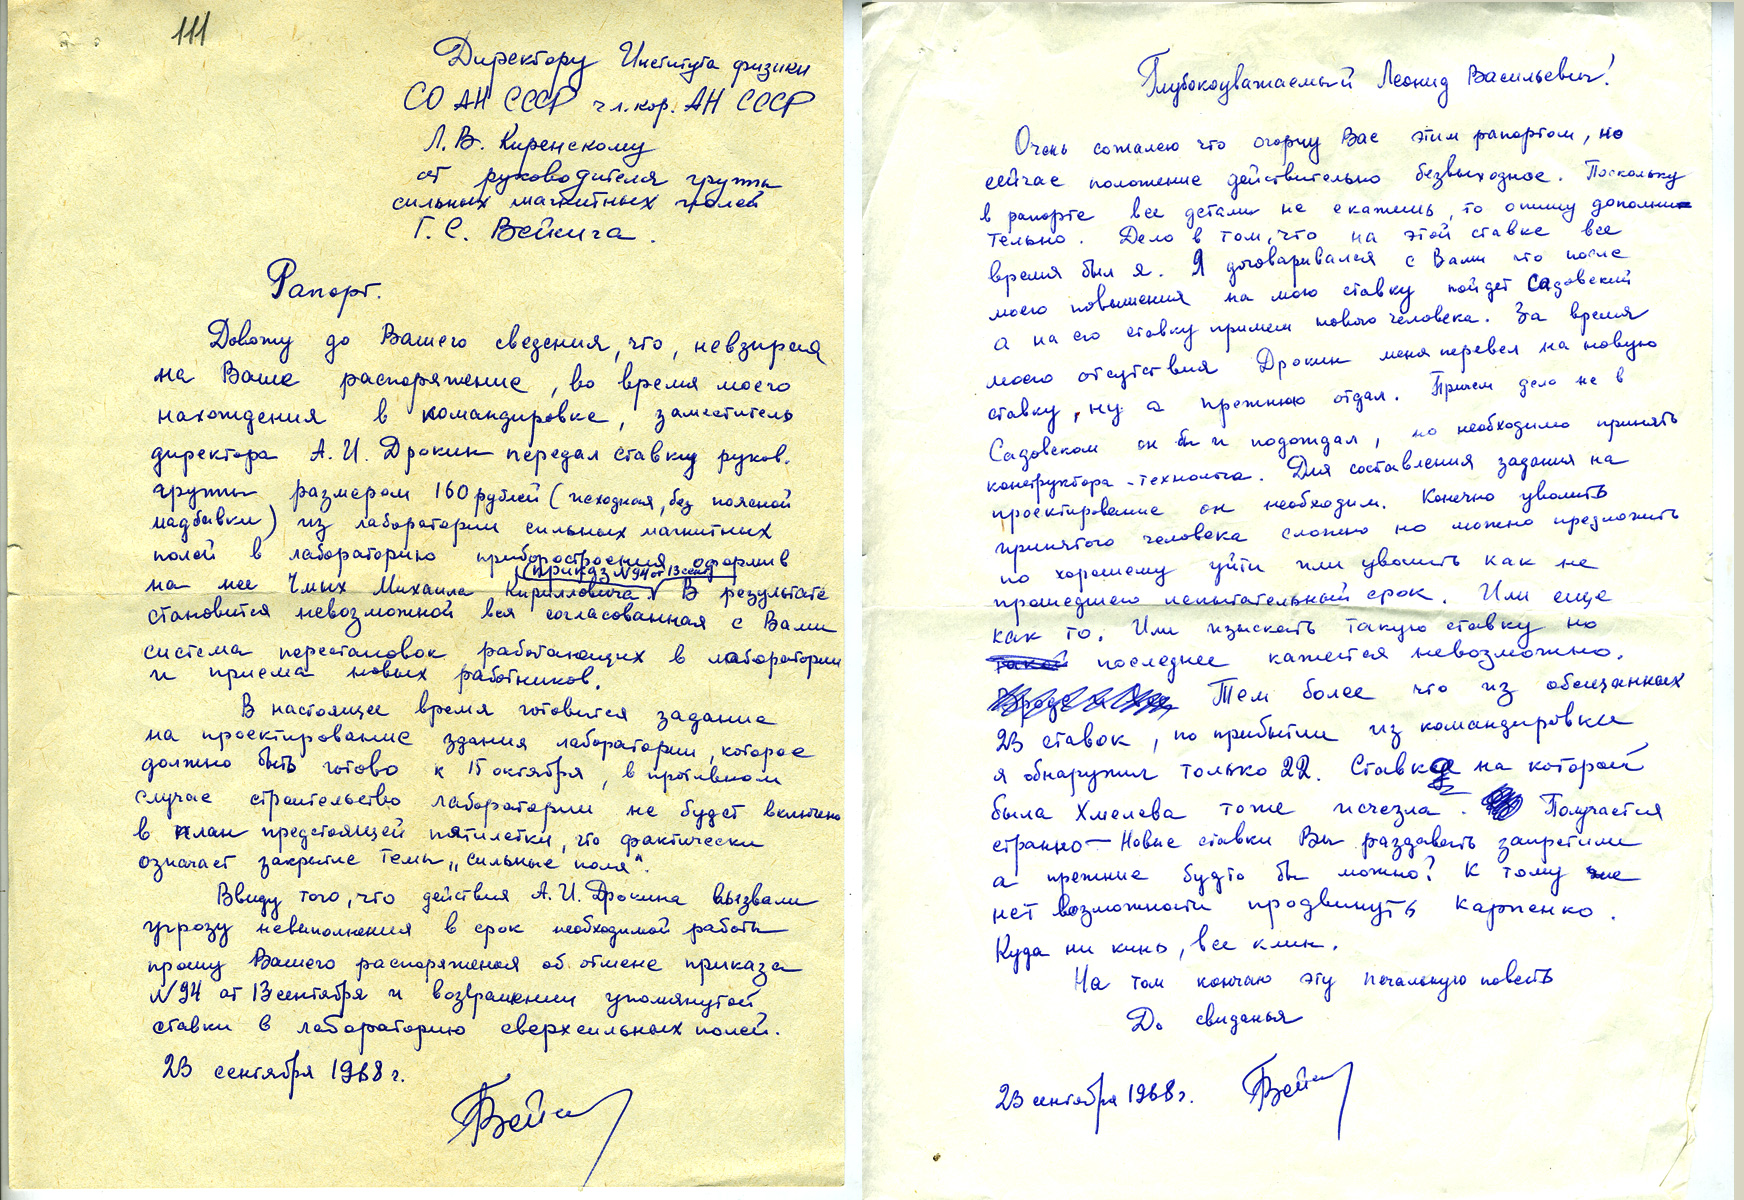 111
Директору Института физики
СО АН СССР чл.кор. АН СССР
Л.В. Киренскому
от руководителя группы
сильных магнитных полей
Г.С. Вейнига.
Рапорт.
Довожу до Вашего сведения, что, невзирая
на Ваше распоряжение, во время моего
нахождения в командировке, заместитель
директора А.И. Дрокин передал ставку руков.
группы размером 160 рублей (исходная, без поясной
надбавки) из лаборатории сильных магнитных
полей в лабораторию приборостроения оформив
(приказ N94 от 13 сент)
на нее Чмых Михаила Кирилловича V В результате
становится невозможной вся согласованная с Вами
система перестановок работающих в лаборатории
и приема новых работников.
В настоящее время готовится задание
на проектирование здания лаборатории, которое
должно быть готово к 15 октября, в противном
случае строительство лаборатории не будет включено
в план предстоящей пятилетки, что фактически
означает закрытие темы „сильные поля".
Ввиду того, что действия А.И. Дрокина вызвали
угрозу невыполнения в срок необходимой работы
прошу Вашего распоряжения об отмене приказа
N94 от 13 сентября и возвращении упомянутой
ставки в лабораторию сверхсильных полей.
23 сентября 1968 г.
Глубокоуважаемый Леонид Васильевич!
Очень сожалею что огорчу Вас этим рапортом, но
сейчас положение действительно безвыходное. Поскольку
в рапорте все детали не скажешь, то опишу дополни-
тельно. Дело в том, что на этой ставке все
время был я. Я договаривался с Вами что после
моего повышения на мою ставку пойдет Садовский
а на его ставку примем нового человека. За время
моего отсутствия Дрокин меня перевел на новую
ставку, ну а прежнюю отдал. Причем дело не в
Садовском он бы и подождал, но необходимо принять
конструктора-технолога. Для составления задания на
проектирование он необходим. Конечно уволить
принятого человека сложно но можно предложить
по хорошему уйти или уволить как не
прошедшего испытательный срок. Или еще
как то. Или изыскать такую ставку но
последнее кажется невозможно.
Тем более что из обещанных
23 ставок, по прибытии из командировки
я обнаружил только 22. Ставка на которой
была Хмелева тоже исчезла. Получается
странно — Новые ставки Вы раздавать запретили
а прежние будто бы можно? К тому же
нет возможности продвинуть Карпенко.
Куда ни кинь, все клин.
На том кончаю эту печальную повесть
До свиданья
23 сентября 1968 г.